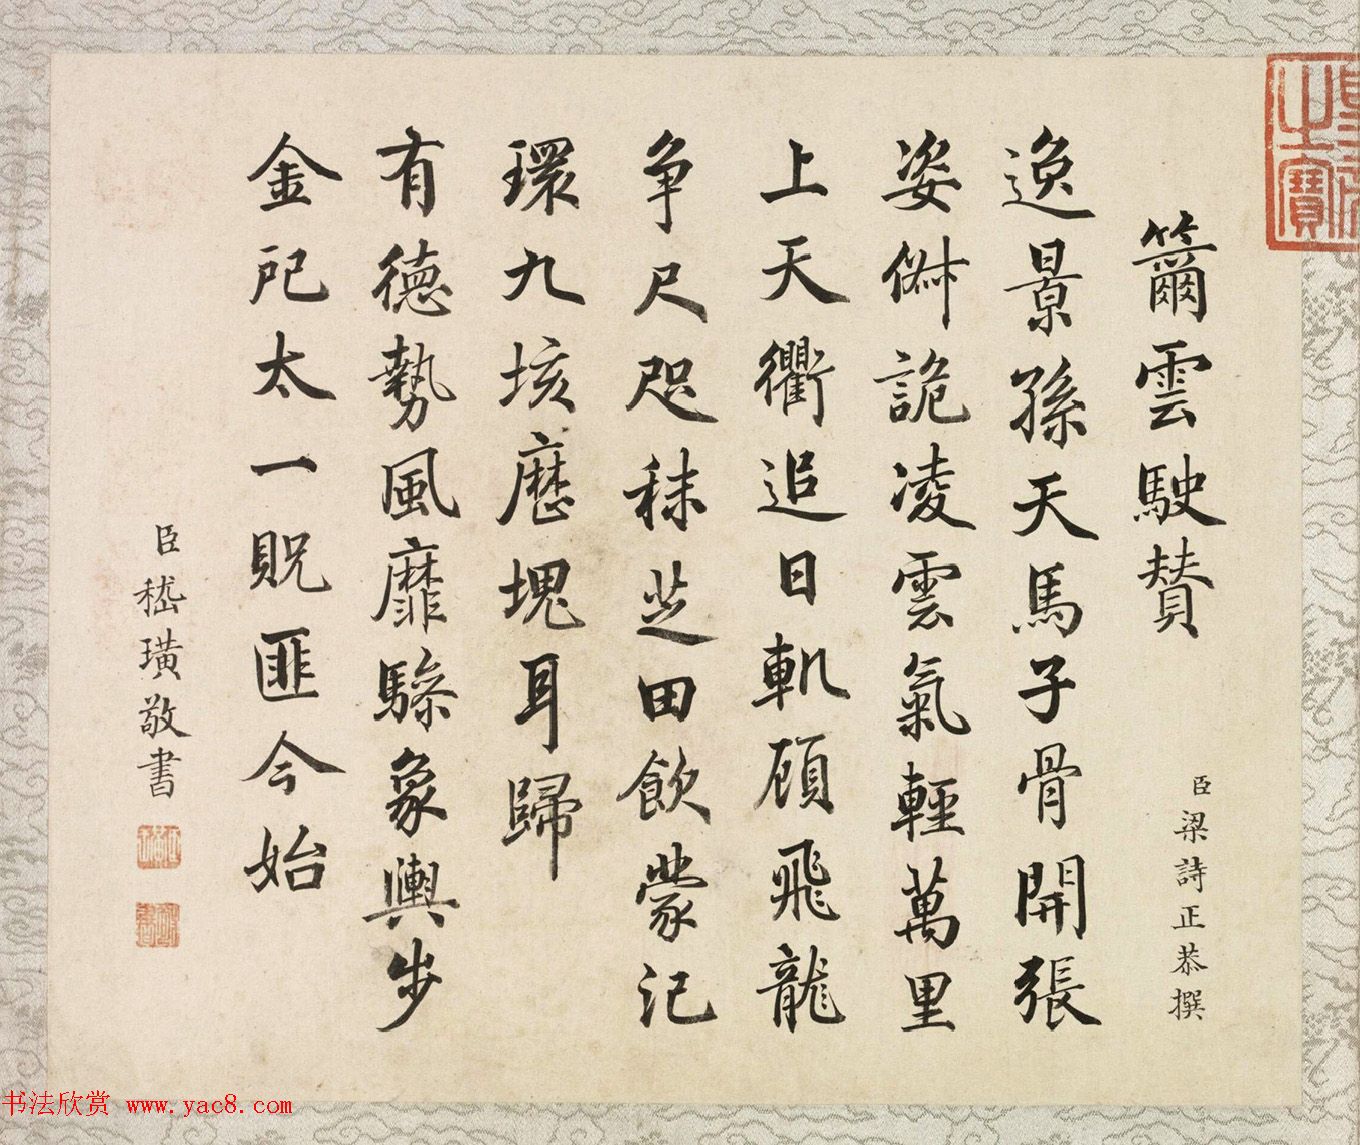 籋雲駛賛
臣梁詩正恭撰
逸景孫天馬子骨開張
姿俶詭凌雲氣輕萬里
上天衢追日軌顧飛龍
争尺咫秣芝田飲蒙汜
環九垓歷塊耳歸
有德勢風靡驂象輿步
金戺太一貺匪今始
臣嵇璜敬書
之寶
书法欣赏 www.yac8.com